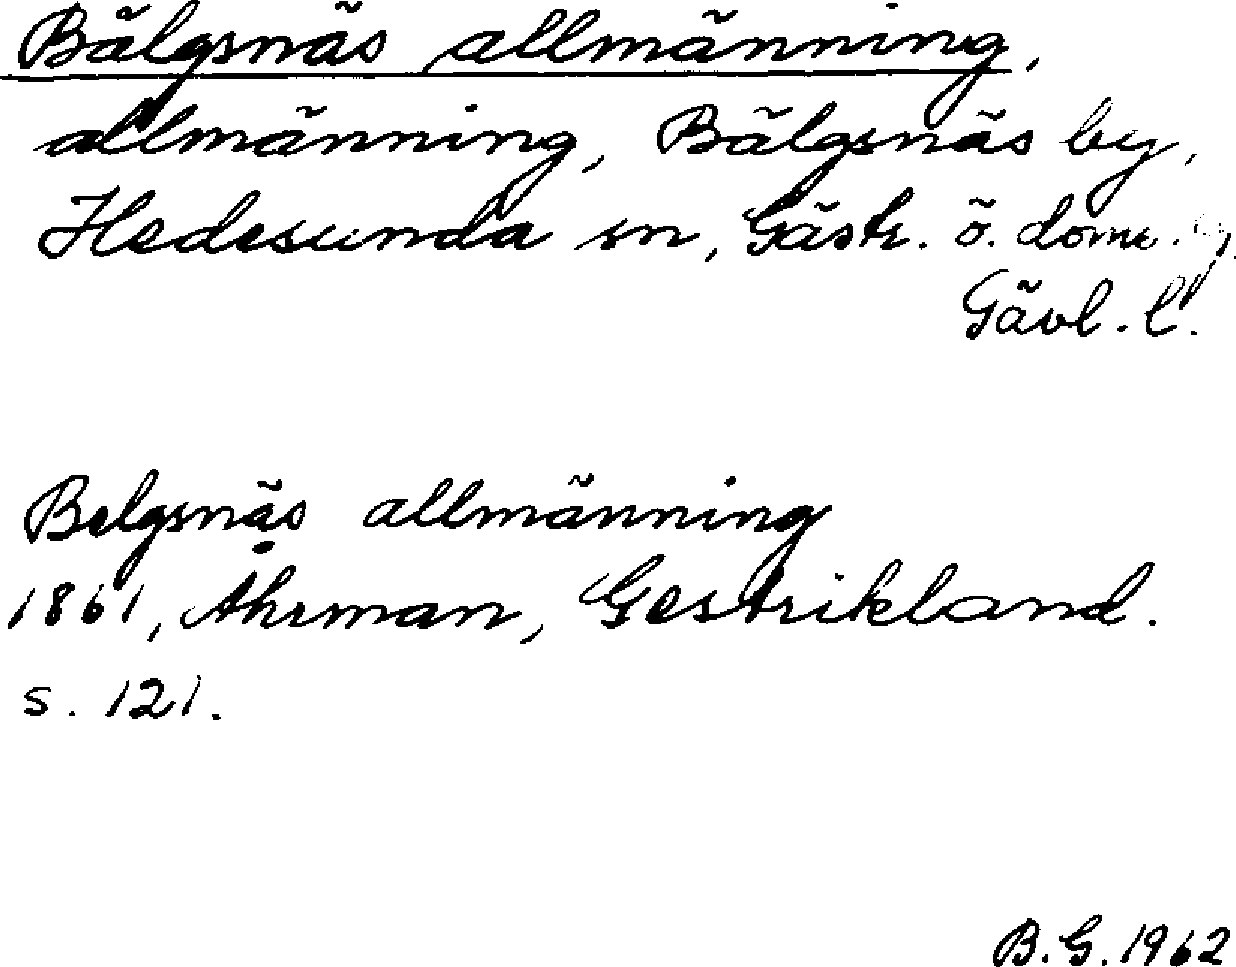 Bälgsnäs allmänning,
allmänning, Bälgsnäs by,
Hedesunda sn, Gästr. ö. doms.
Gävl. l.
Belgsnäs allmänning
1861, Ahrman, Gestrikland.
s. 121.
B.G. 1962